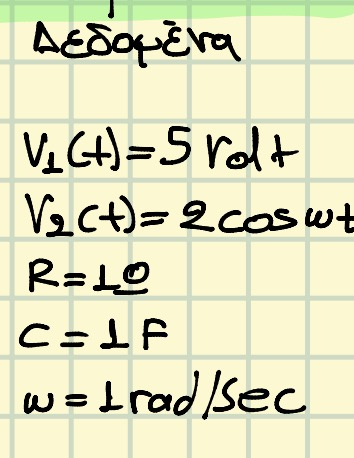 Δεδομένα
V₁(t)=5 Volt
V₂(t)=2cosωt
R=1Ω
C=1F
ω=1rad/sec